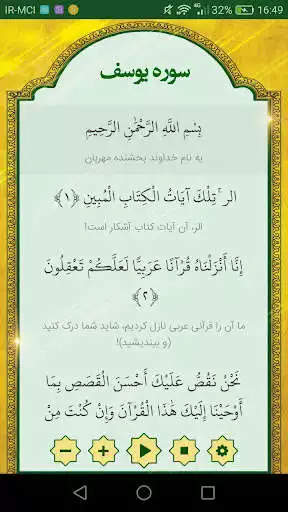 IR-MCI 4G 32% 16:49
سوره یوسف
بِسْمِ اللَّهِ الرَّحْمَٰنِ الرَّحِيمِ
به نام خداوند بخشنده مهربان
الر ۚ تِلْكَ آيَاتُ الْكِتَابِ الْمُبِينِ ﴿١﴾
الر، آن آیات کتاب آشکار است!
إِنَّا أَنْزَلْنَاهُ قُرْآنًا عَرَبِيًّا لَعَلَّكُمْ تَعْقِلُونَ
﴿٢﴾
ما آن را قرآنی عربی نازل کردیم، شاید شما درک کنید
(و بیندیشید)!
نَحْنُ نَقُصُّ عَلَيْكَ أَحْسَنَ الْقَصَصِ بِمَا
أَوْحَيْنَا إِلَيْكَ هَٰذَا الْقُرْآنَ وَإِنْ كُنْتَ مِنْ